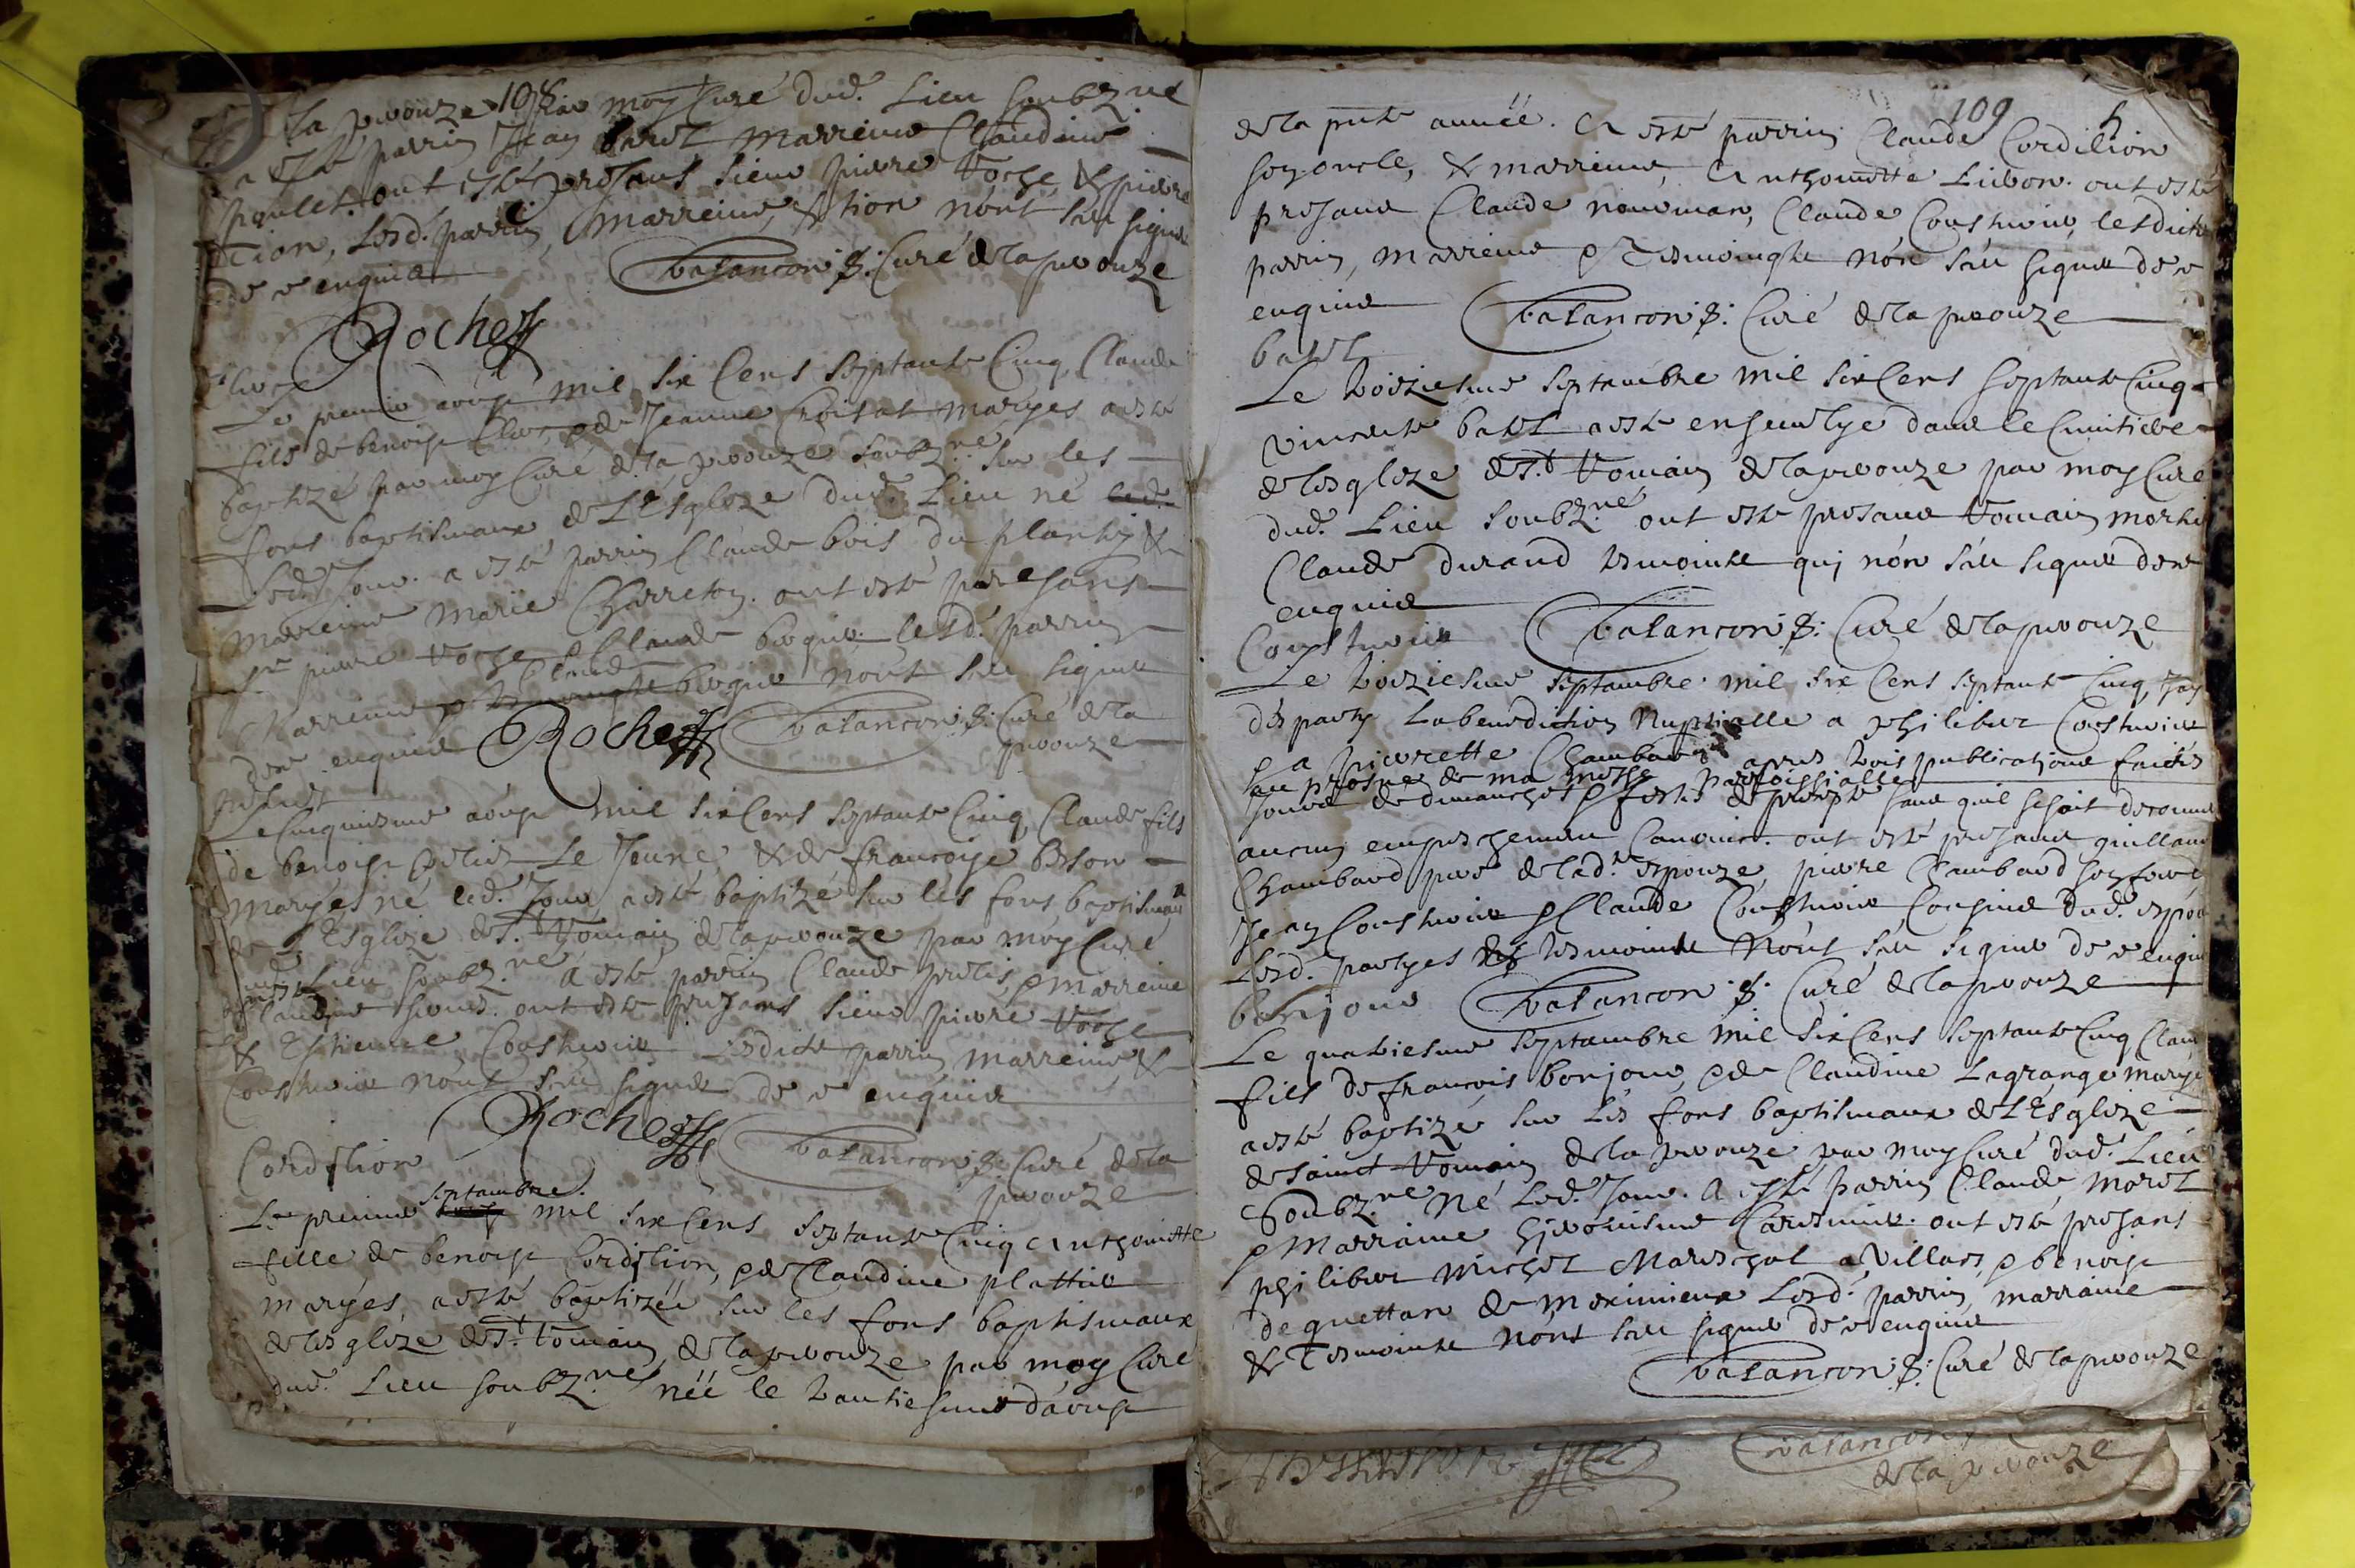 108
la pérouze par moy Curé dud. Lieu soubz.né
a esté parrin Jean baret marreine Claudine
poulet. ont esté présans sieur pierre Roche, & pierre
Tion, lesd. parrin, marreine, & tion n'ont sceu signer
de ce enquis
balancon p: Curé de la pérouze
Roche
Clerc
Le premier aoust mil six Cens septante Cinq, Claude
fils de benoist Clerc, & de Jeanne Croisat maryés a esté
baptizé par moy Curé de la pérouze soubz.né sur les
fons baptismaux de L'Esglize dud. Lieu né
Led. Jour. a esté parrin Claude bois du planty &
marreine Marie Charreton. ont esté présans
Sr pierre Roche & Claude lesd. parrin
Marreine & Claude n'ont sceu signer
de ce enquis Roche balancon p: Curé de la
pérouze
Le Cinquiesme aoust mil six Cens septante Cinq, Claude fils
de benoist Le Jeune, & de francoise
maryés né led. Jour a esté baptizé sur les fons baptismaux
de L'Esglize de St. Romain de la pérouze par moy Curé
dud. Lieu soubz.né a esté parrin Claude & marreine
Claudine ont esté présans sieur pierre Roche
& Estienne Cousturier Lesdits parrin marreine &
Cousturier n'ont sceu signer de ce enquis
Roche balancon p: Curé de la
pérouze
Cordilion
Le premier septambre mil six Cens septante Cinq anthoinette
fille de benoist Cordilion, & de Claudine plattier
maryés, a esté baptizée sur les fons baptismaux
de l'esglize de St. Romain de la pérouze par moy Curé
dud. Lieu soubz.né née le trantiesme d'aoust
109
de la pnte année. a esté parrin Claude Cordilion
son oncle, & marreine, anthoinette ont esté
présans Claude Claude Cousturier, lesdits
parrin, marreine & Tesmoingts n'ont sceu signer de ce
enquis balancon p: Curé de la pérouze
batet
Le troiziesme septambre mil six Cens septante Cinq
vincent batet a esté ensevelye dans le Cimitiere
de l'esglize de St. Romain de la pérouze par moy Curé
dud. Lieu soubz.né ont esté présans Romain
Claude durand tesmoints qui n'ont sceu signer de ce
enquis
Cousturier balancon p: Curé de la pérouze
Le troiziesme septambre mil six Cens septante Cinq, J'ay
desparty La benediction Nuptialle a philibert Cousturier
& a pierrette Chambard apres trois publications faictes
au prosne de ma messe parroissialle
Jours de dimanches & festes de precepte sans quil se soit descouvert
aucun empeschement Canonic. ont esté présans guillaume
Chambard père de lad. espouze, pierre Chambard son frere
Jean Cousturier & Claude Cousturier Cousins dud. espoux
Lesd. partyes & tesmoints n'ont sceu signer de ce enquis
bonjour balancon p: Curé de la pérouze
Le quatriesme septambre mil six Cens septante Cinq Claude
fils de francois bonjour, & de Claudine Lagrange maryés
a esté baptizé sur les fons baptismaux de L'Esglize
de Sainct Romain de la pérouze par moy Curé dud. Lieu
Soubz.né Né Led. Jour. a esté parrin Claude moret
& Marraine ont esté présans
philibert michel Mareschal a Villars & benoist
de quettan de meximieux Lesd. parrin, marraine
& Tesmoints n'ont sceu signer de ce enquis
balancon p: Curé de la pérouze
balancon
de la pérouze